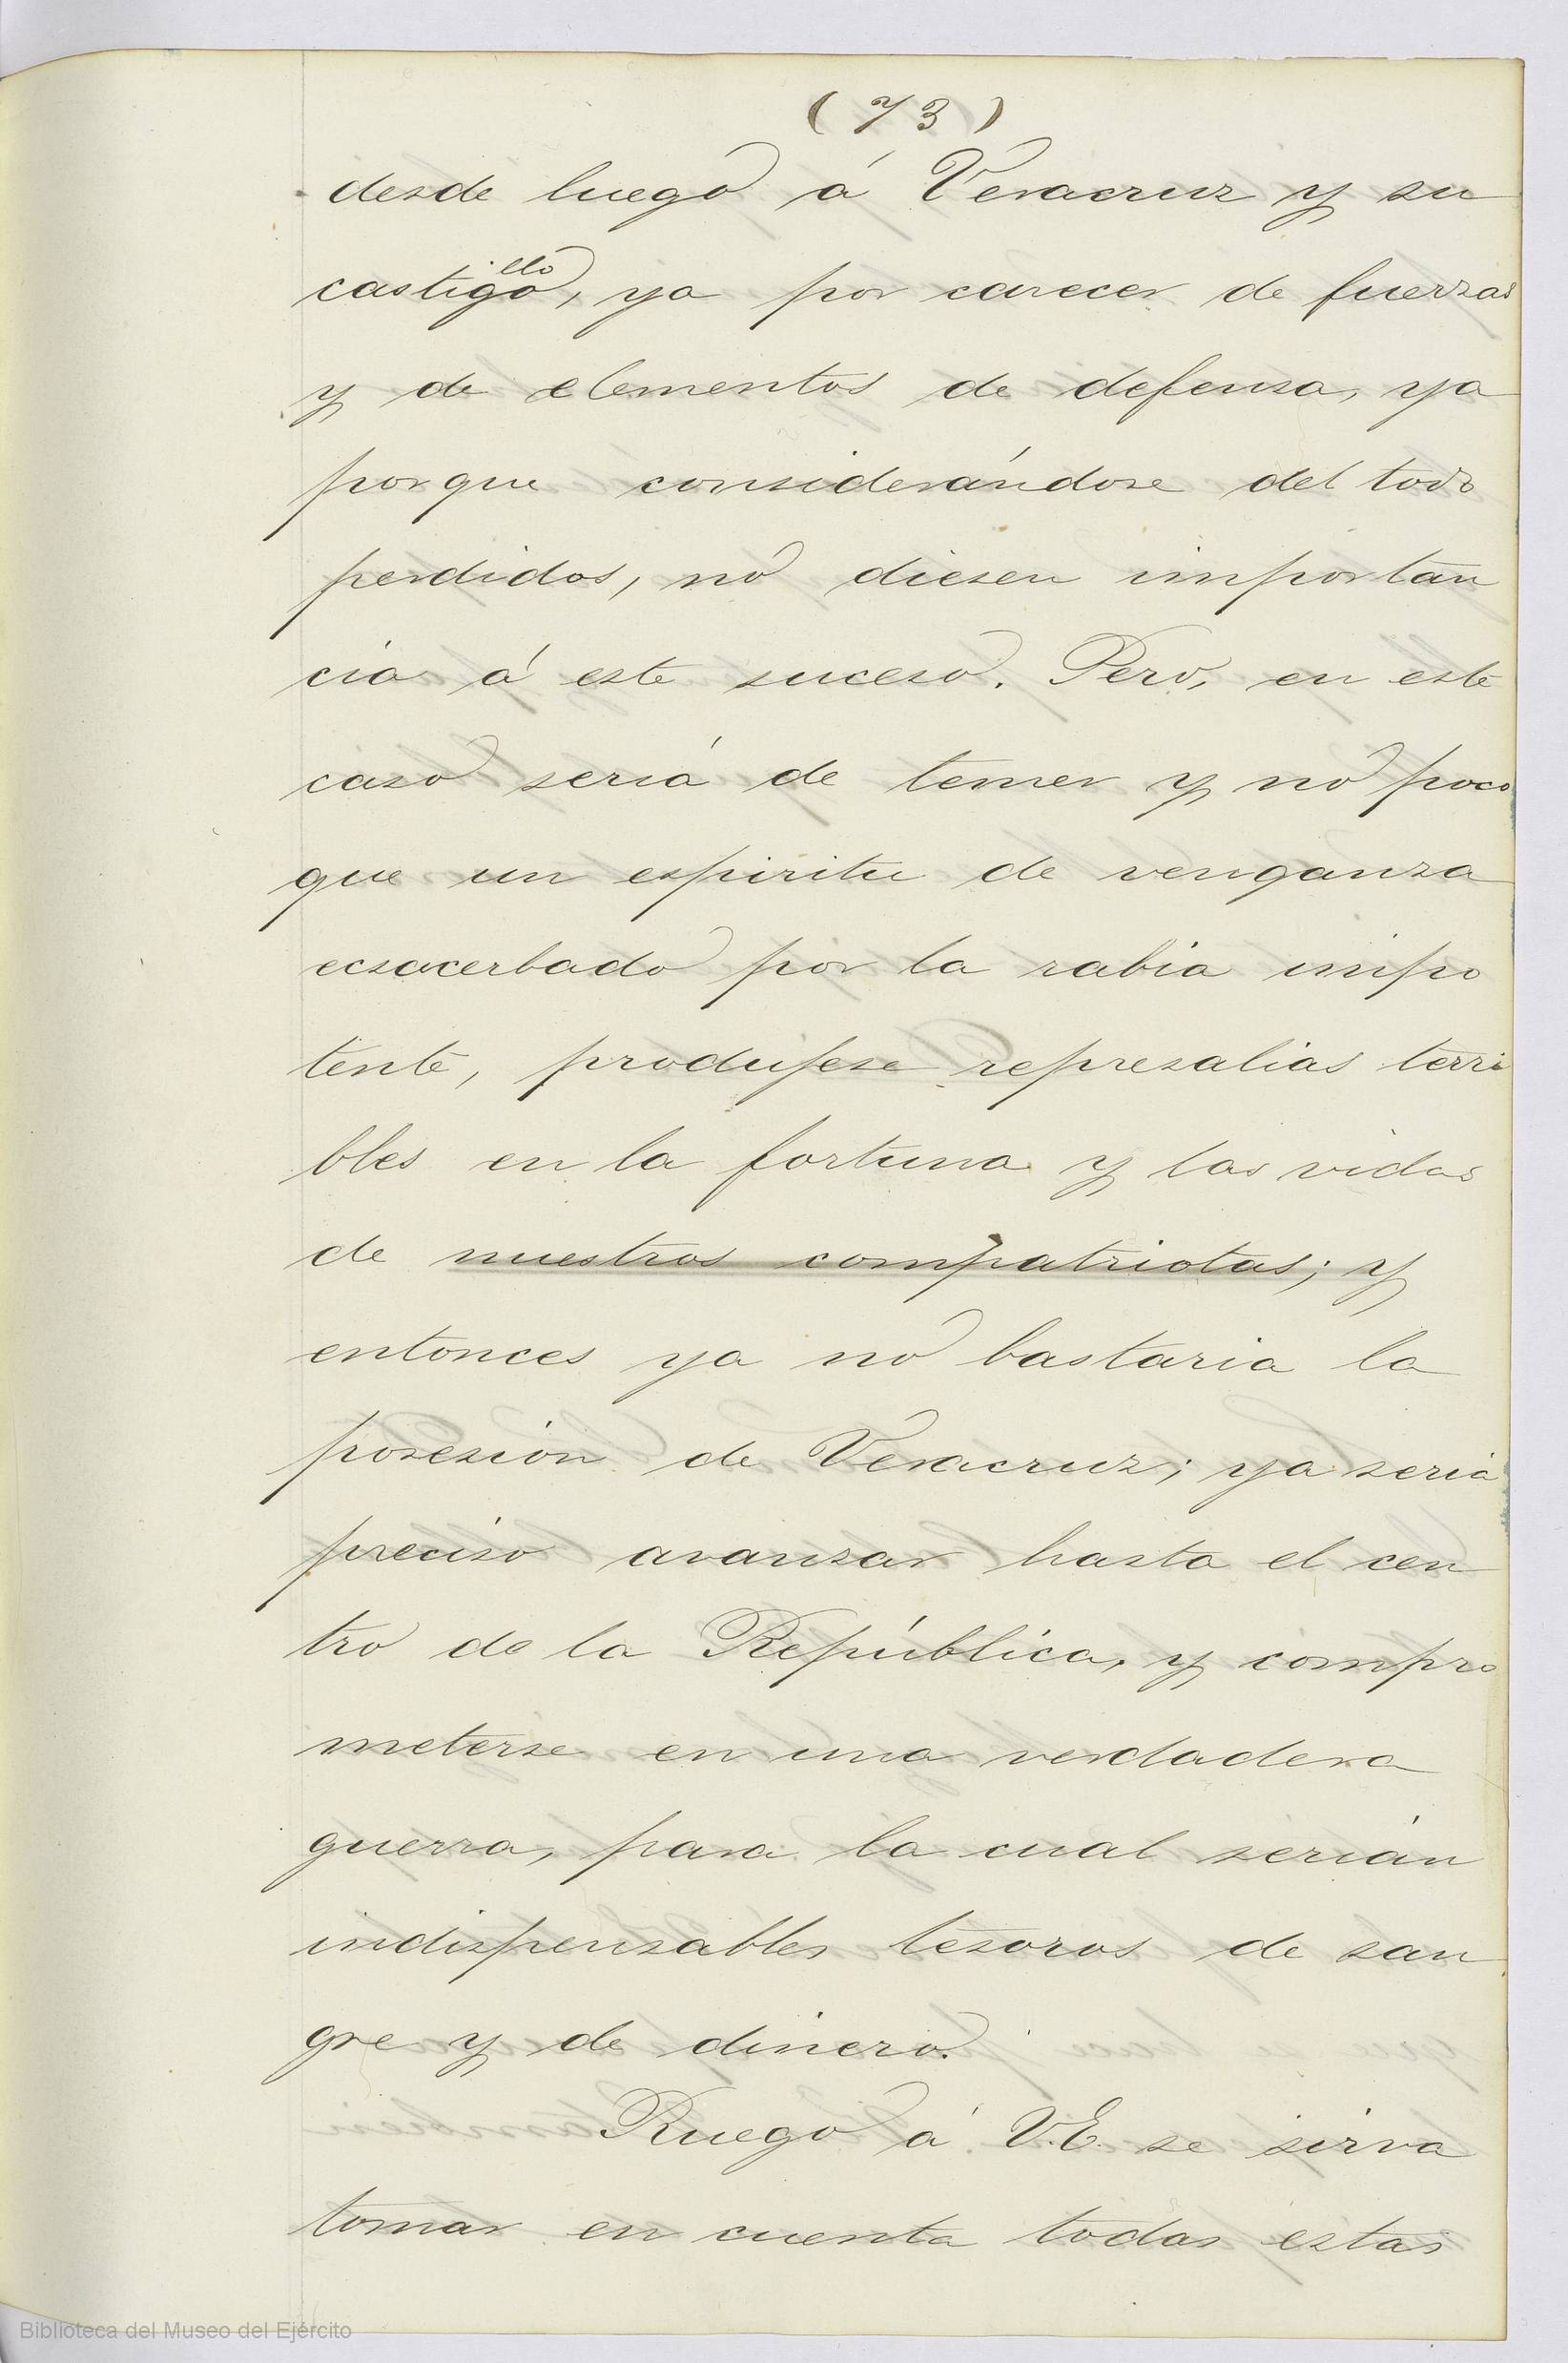 (73)
desde luego á Veracruz y su
illo
castigo, ya por carecer de fuerzas
y de elementos de defensa, ya
porque considerándose del todo
perdidos, no diesen importan
cia á este suceso. Pero, en este
caso seriá de temer y no poco
que un espiritu de venganza
ecsacerbado por la rabia impo
tente, produjese represalias terri
bles en la fortuna y las vidas
de nuestros compatriotas; y
entonces ya no bastaria la
posesion de Veracruz; ya seria
preciso avanzar hasta el cen
tro de la República, y compro
meterse en una verdadera
guerra, para la cual serián
indispensables tesoros de san
gre y de dinero.
Ruego á V.E. se sirva
tomar en cuenta todas estas
Biblioteca del Museo del Ejército